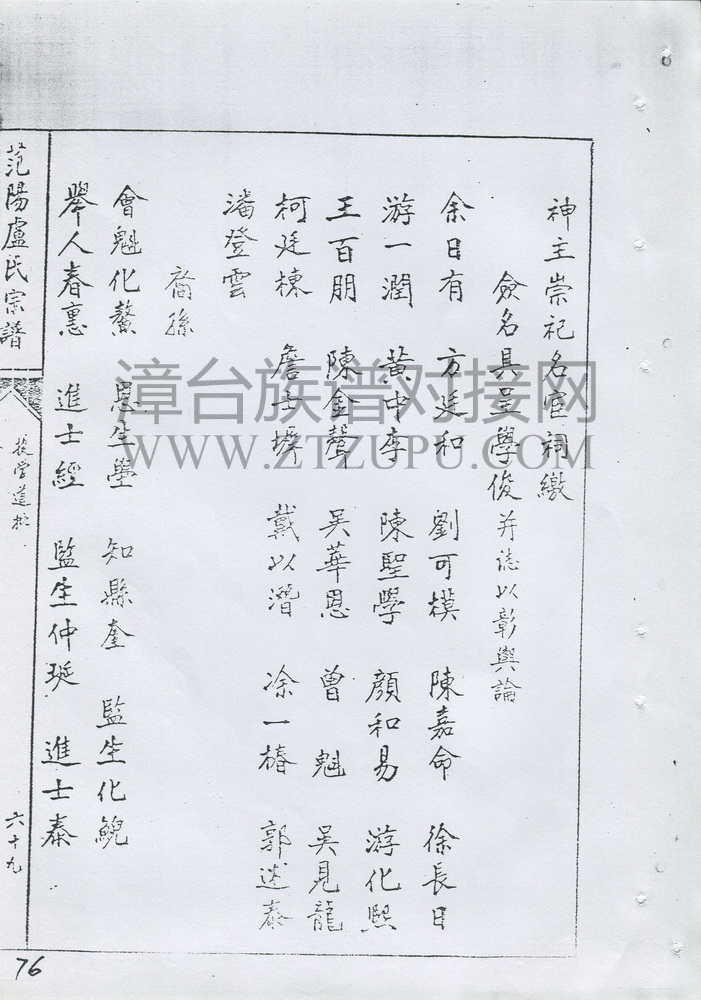 神主崇祀名宦祠繳
僉名具呈學俊并誌以彰輿論
余日有 方廷和 劉可模 陳嘉命 徐長日
游一潤 黃中李 陳聖學 顏和易 游化熙
王百朋 陳金聲 吳華恩 曾魁 吳見龍
柯廷棟 詹士 戴以潛 凃一椿 郭述泰
潘登雲
裔孫
會魁化鰲 恩生壆 知縣奎 監生化鯢
舉人春蕙 進士經 監生仲珽 進士泰
范陽盧氏宗譜
六十九
76
漳台族谱对接网
WWW.ZTZUPU.COM